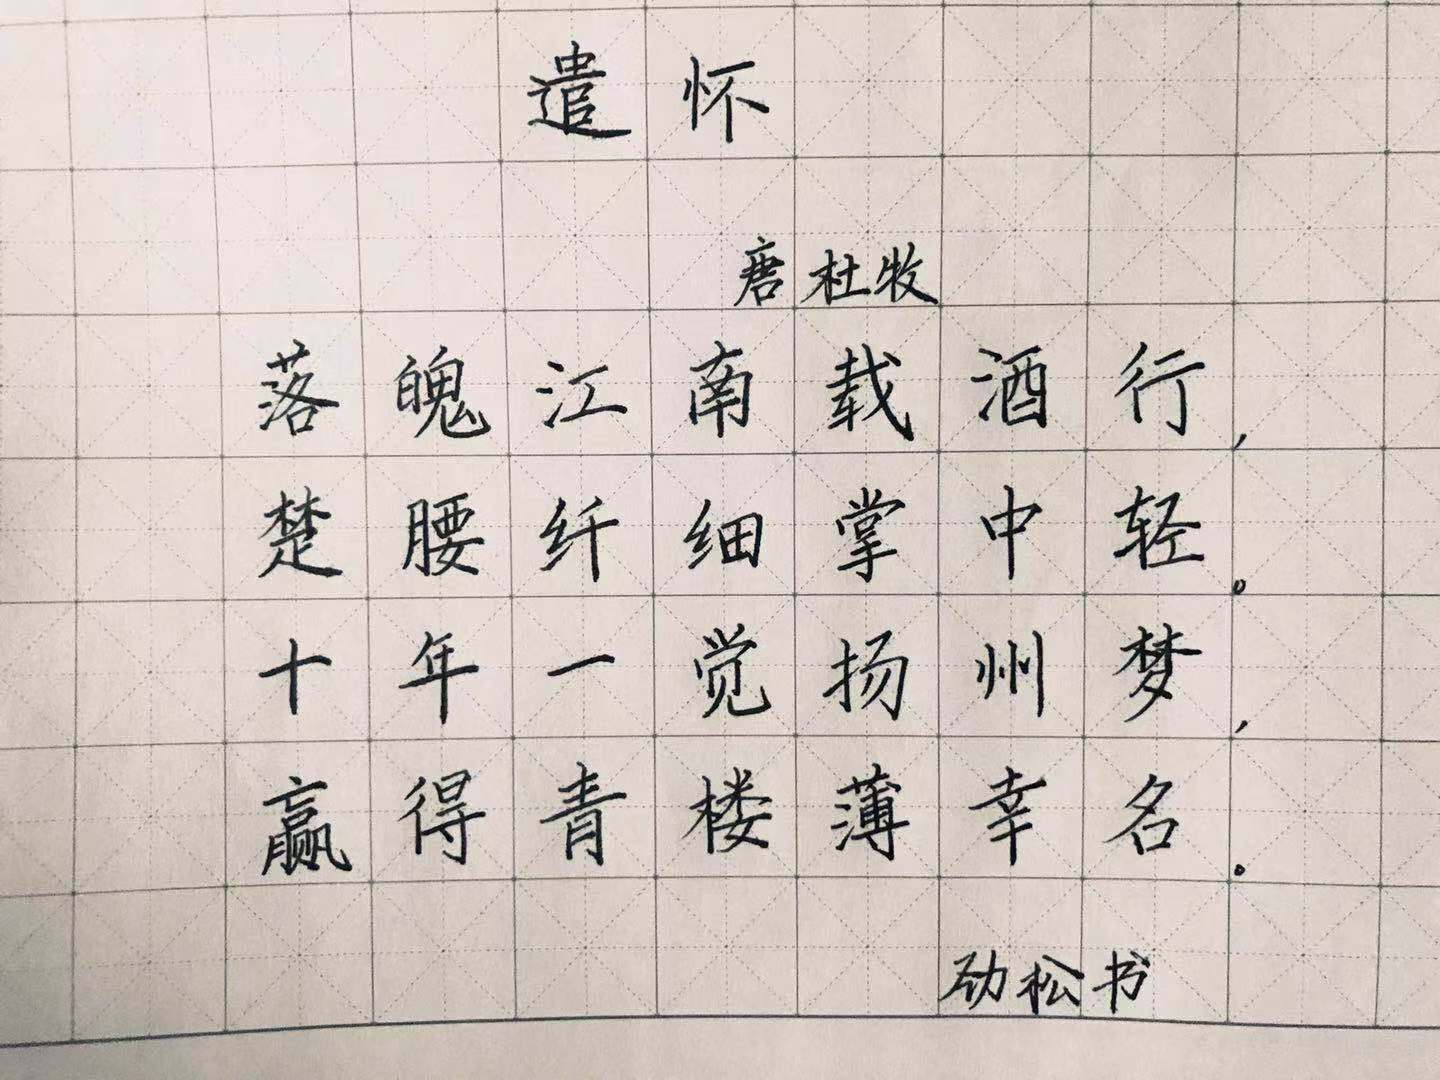 遣怀
唐 杜牧
落魄江南载酒行,
楚腰纤细掌中轻。
十年一觉扬州梦,
赢得青楼薄幸名。
劲松书